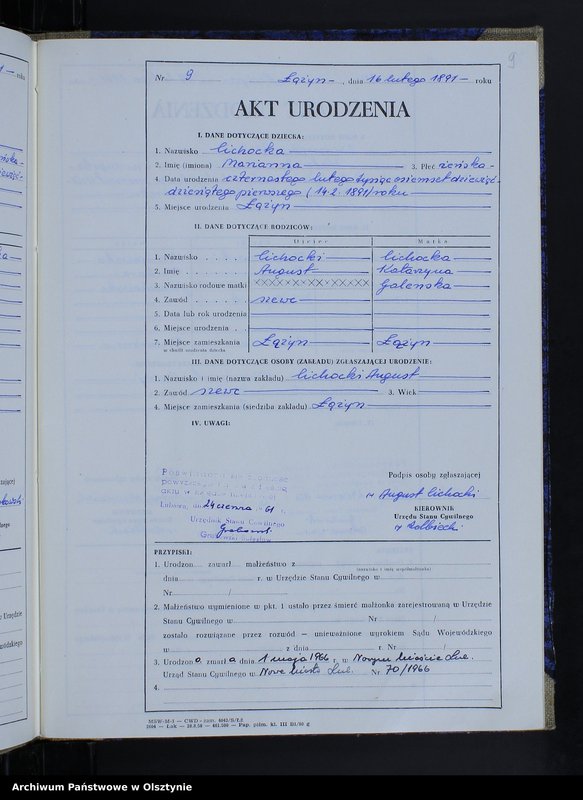 9
Nr 9 Łążyn, dnia 16 lutego 1891 roku
AKT URODZENIA
I. DANE DOTYCZĄCE DZIECKA:
1. Nazwisko Cichocka
2. Imię (imiona) Marianna 3. Płeć żeńska
4. Data urodzenia czternastego lutego tysiąc osiemset dziewięć-
dziesiątego pierwszego (14.2.1891) roku
5. Miejsce urodzenia Łążyn
II. DANE DOTYCZĄCE RODZICÓW:
Ojciec Matka
1. Nazwisko Cichocki Cichocka
2. Imię August Katarzyna
3. Nazwisko rodowe matki XXXXXXXXXXXX Galeńska
4. Zawód szewc
5. Data lub rok urodzenia
6. Miejsce urodzenia
7. Miejsce zamieszkania Łążyn Łążyn
w chwili urodzenia dziecka
III. DANE DOTYCZĄCE OSOBY (ZAKŁADU) ZGŁASZAJĄCEJ URODZENIE:
1. Nazwisko i imię (nazwa zakładu) Cichocki August
2. Zawód szewc 3. Wiek
4. Miejsce zamieszkania (siedziba zakładu) Łążyn
IV. UWAGI:
Poświadczam zgodność
powyższego
aktu w
dn. 24 czerwca 61 r.
Urzędnik Stanu Cywilnego
Podpis osoby zgłaszającej
August Cichocki
KIEROWNIK
Urzędu Stanu Cywilnego
PRZYPISKI:
1. Urodzon zawarł małżeństwo z
(nazwisko i imię współmałżonka)
dnia r. w Urzędzie Stanu Cywilnego w
Nr /
2. Małżeństwo wymienione w pkt. 1 ustało przez śmierć małżonka zarejestrowaną w Urzędzie
Stanu Cywilnego w Nr /
zostało rozwiązane przez rozwód — unieważnione wyrokiem Sądu Wojewódzkiego
w z dnia r. Nr /
3. Urodzona zmarła dnia 1 maja 1966 r. w Nowym Mieście Lub.
Urząd Stanu Cywilnego w Nowe Miasto Lub. Nr 70/1966
4.
Archiwum Państwowe w Olsztynie